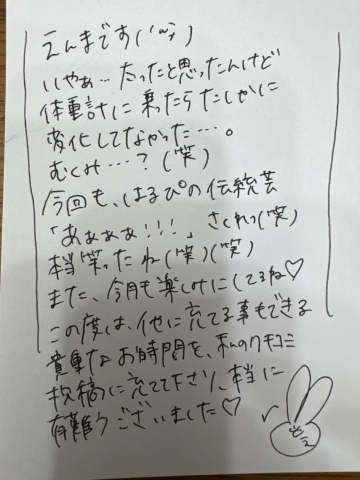 えんまです('ω')
いやぁ…太ったと思ったんけど
体重計に乗ったらたしかに
変化してなかった…。
むくみ…?(笑)
今回も、はるぴの伝統芸
「あぁぁぁ!!!」さくれつ(笑)
本当笑ったね(笑)(笑)
また、今月も楽しみにしてるね♡
この度は、他に充てる事もできる
貴重なお時間を、私のクチコミ
投稿に充てて下さり、本当に
有難うございました♡